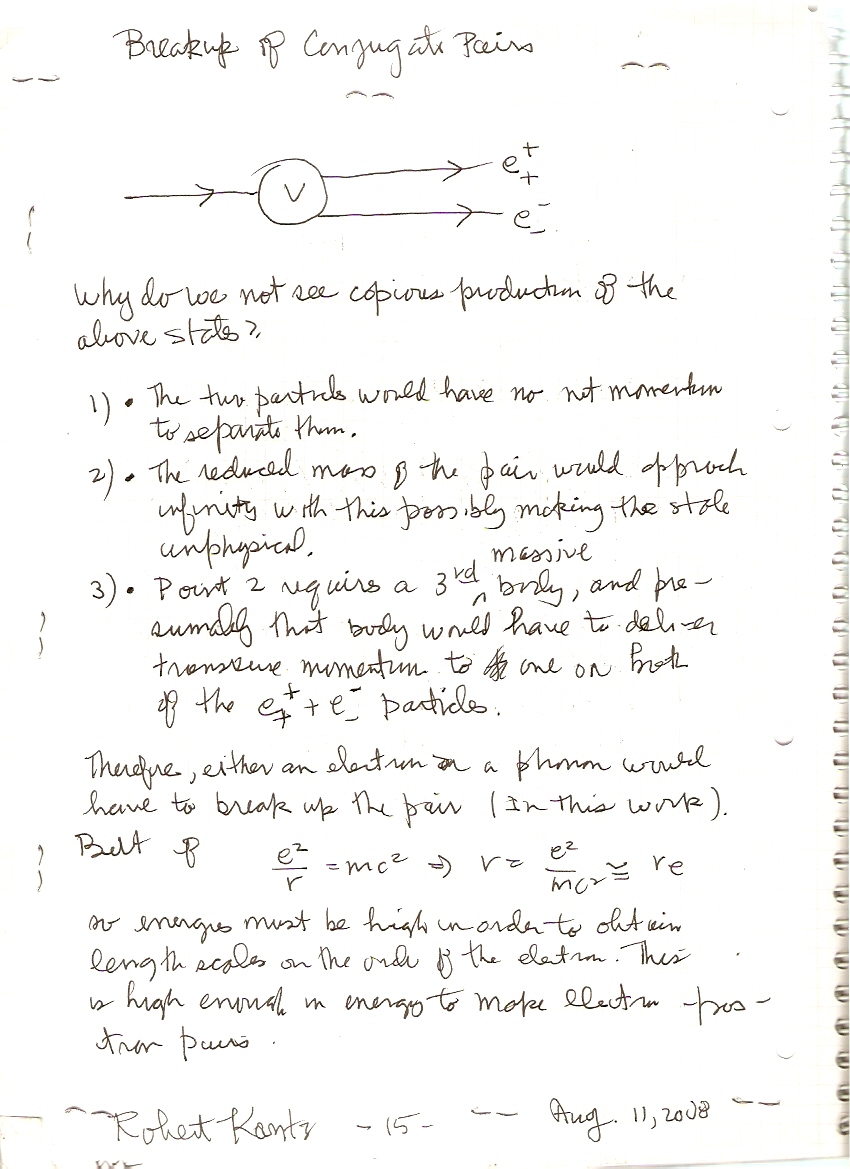 Breakup of Conjugate Pairs
V
e++
e--
Why do we not see copious production of the
above states?
1) • The two particles would have no net momentum
to separate them.
2) • The reduced mass of the pair would approach
infinity with this possibly making the state
unphysical.
massive
3) • Point 2 requires a 3rd ^ body, and pre-
sumably that body would have to deliver
transverse momentum to one or both
of the e++ + e-- particles.
Therefore, either an electron or a phonon would
have to break up the pair (In this work).
But if
e²/r = mc² ⇒ r = e²/mc² ≅ re
so energies must be high in order to obtain
length scales on the order of the electron. This
is high enough in energy to make electron -pos-
itron pairs.
Robert Kantz - 15 - Aug. 11, 2008